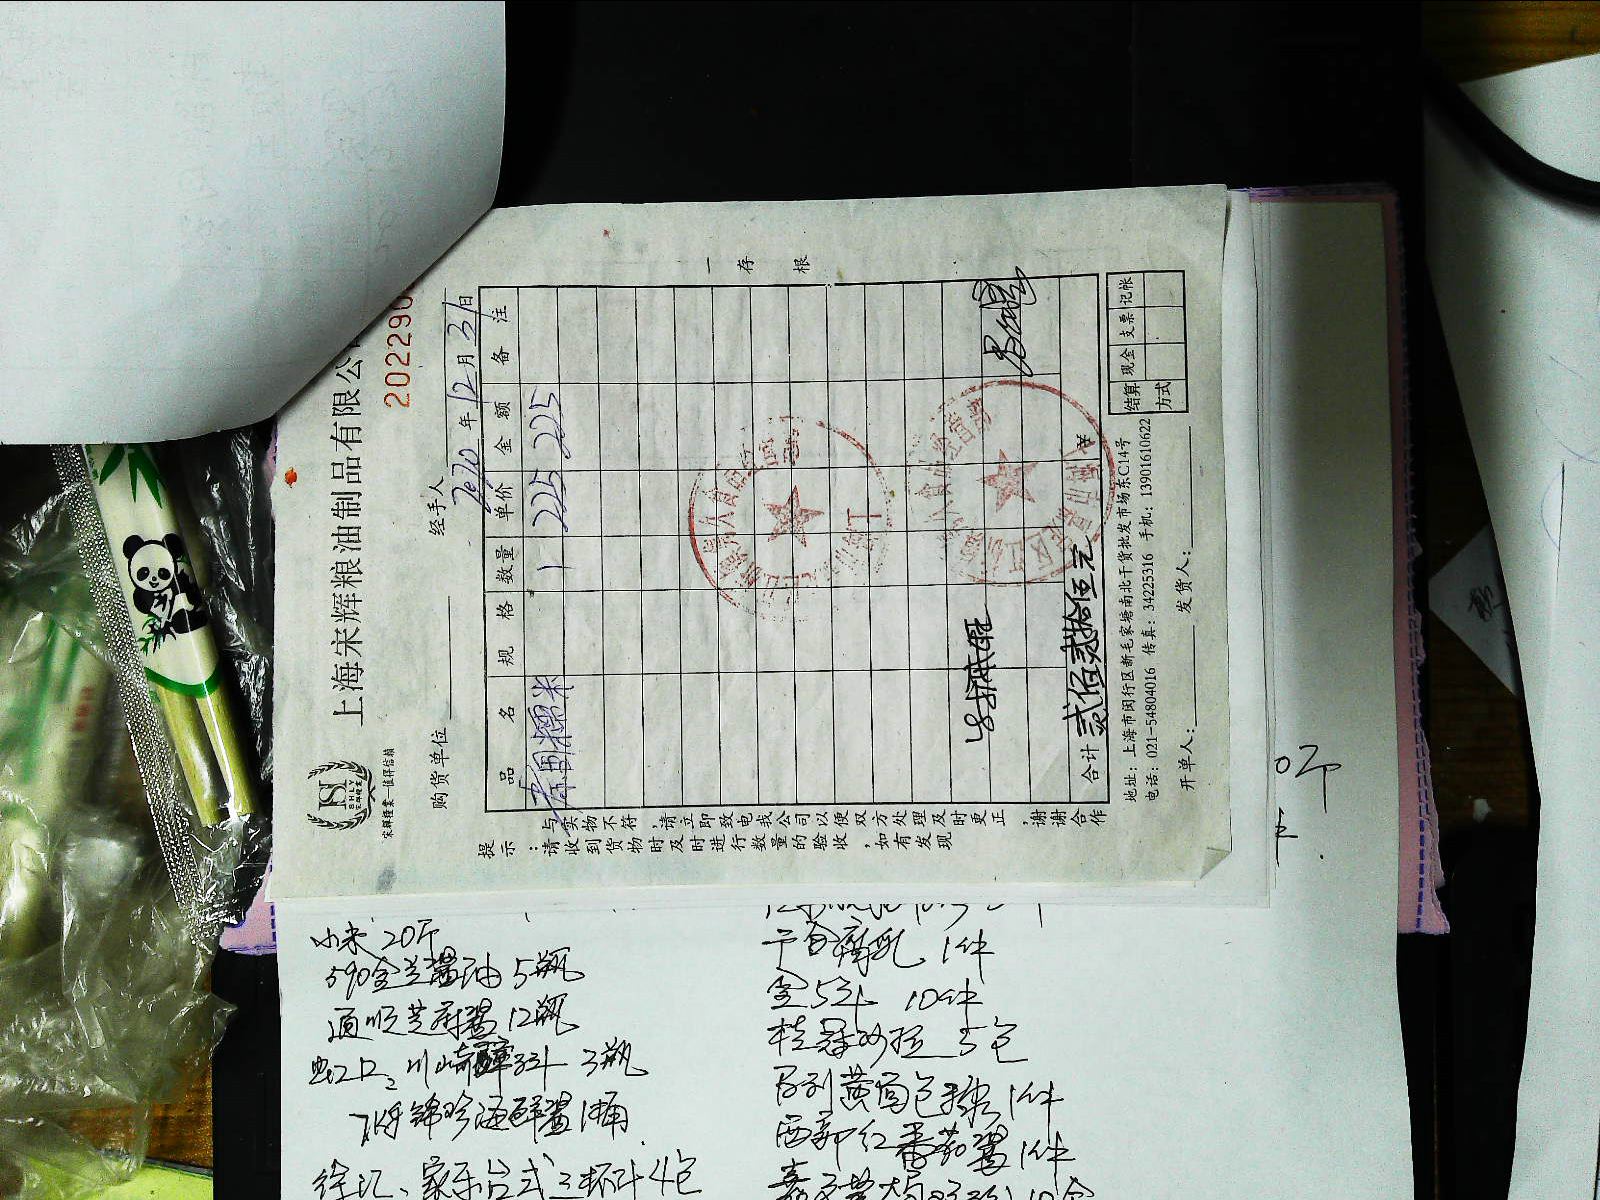 上海宋辉粮油制品有限公
SHLY
宋辉粮业 值得信赖
202290
购货单位 经手人
2020年12月31日
品名 规格 数量 单价 金额 备注
泰国糯米 1 225 225
一存根
合计 贰佰贰拾伍元 ¥
结算方式 现金 支票 记帐
地址: 上海市闵行区新毛家塘南北干货批发市场东C14号
电话: 021-54804016 传真: 34225316 手机: 13901610622
开单人: 发货人:
提示:请收到货物时及时进行数量的验收,如有发现
与实物不符,请立即致电我公司以便双方处理及时更正,谢谢合作
小米 20斤
590金兰酱油 5瓶
通顺芝麻酱 12瓶
海鲜酱 1桶
徐汇、家乐台式三杯汁 4包
干白腐乳 1件
10件
桂冠沙拉 5包
黄面包糠 1件
西部红番茄酱 1件